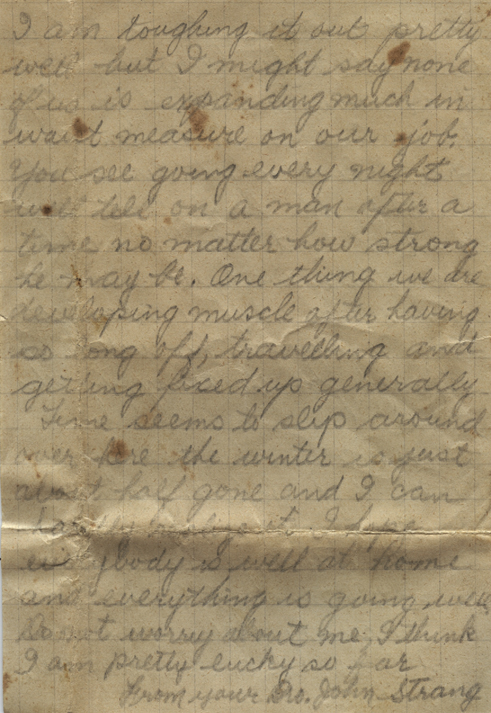 I am toughing it out pretty
well but I might say none
of us is expanding much in
waist measure on our job.
You see going every night
will tell on a man after a
time no matter how strong
he may be. One thing we are
developing muscle after having
so long off, travelling and
getting fixed up generally
Time seems to slip around
over here the winter is just
about half gone and I can
hardly it. I hope
everybody is well at home
and everything is going well
Do not worry about me I think
I am pretty lucky so far
From your Bro. John Strang